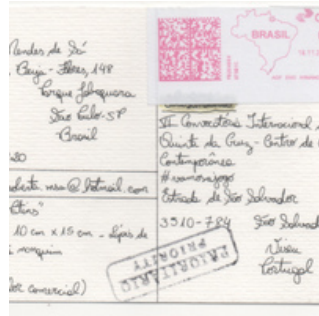 Mendes de Sá
Beija-flores, 148
Parque Jabaquara
São Paulo-SP
Brasil
@hotmail.com
10 cm x 15 cm - lápis de
nanquim
comercial)
BRASIL
II Convocatória Internacional
Quinta da Cruz - Centro de
Contemporânea
#vamosajogo
Estrada de São Salvador
3510-784 São Salvad
Viseu
Portugal
PRIORITÁRIO
PRIORITY